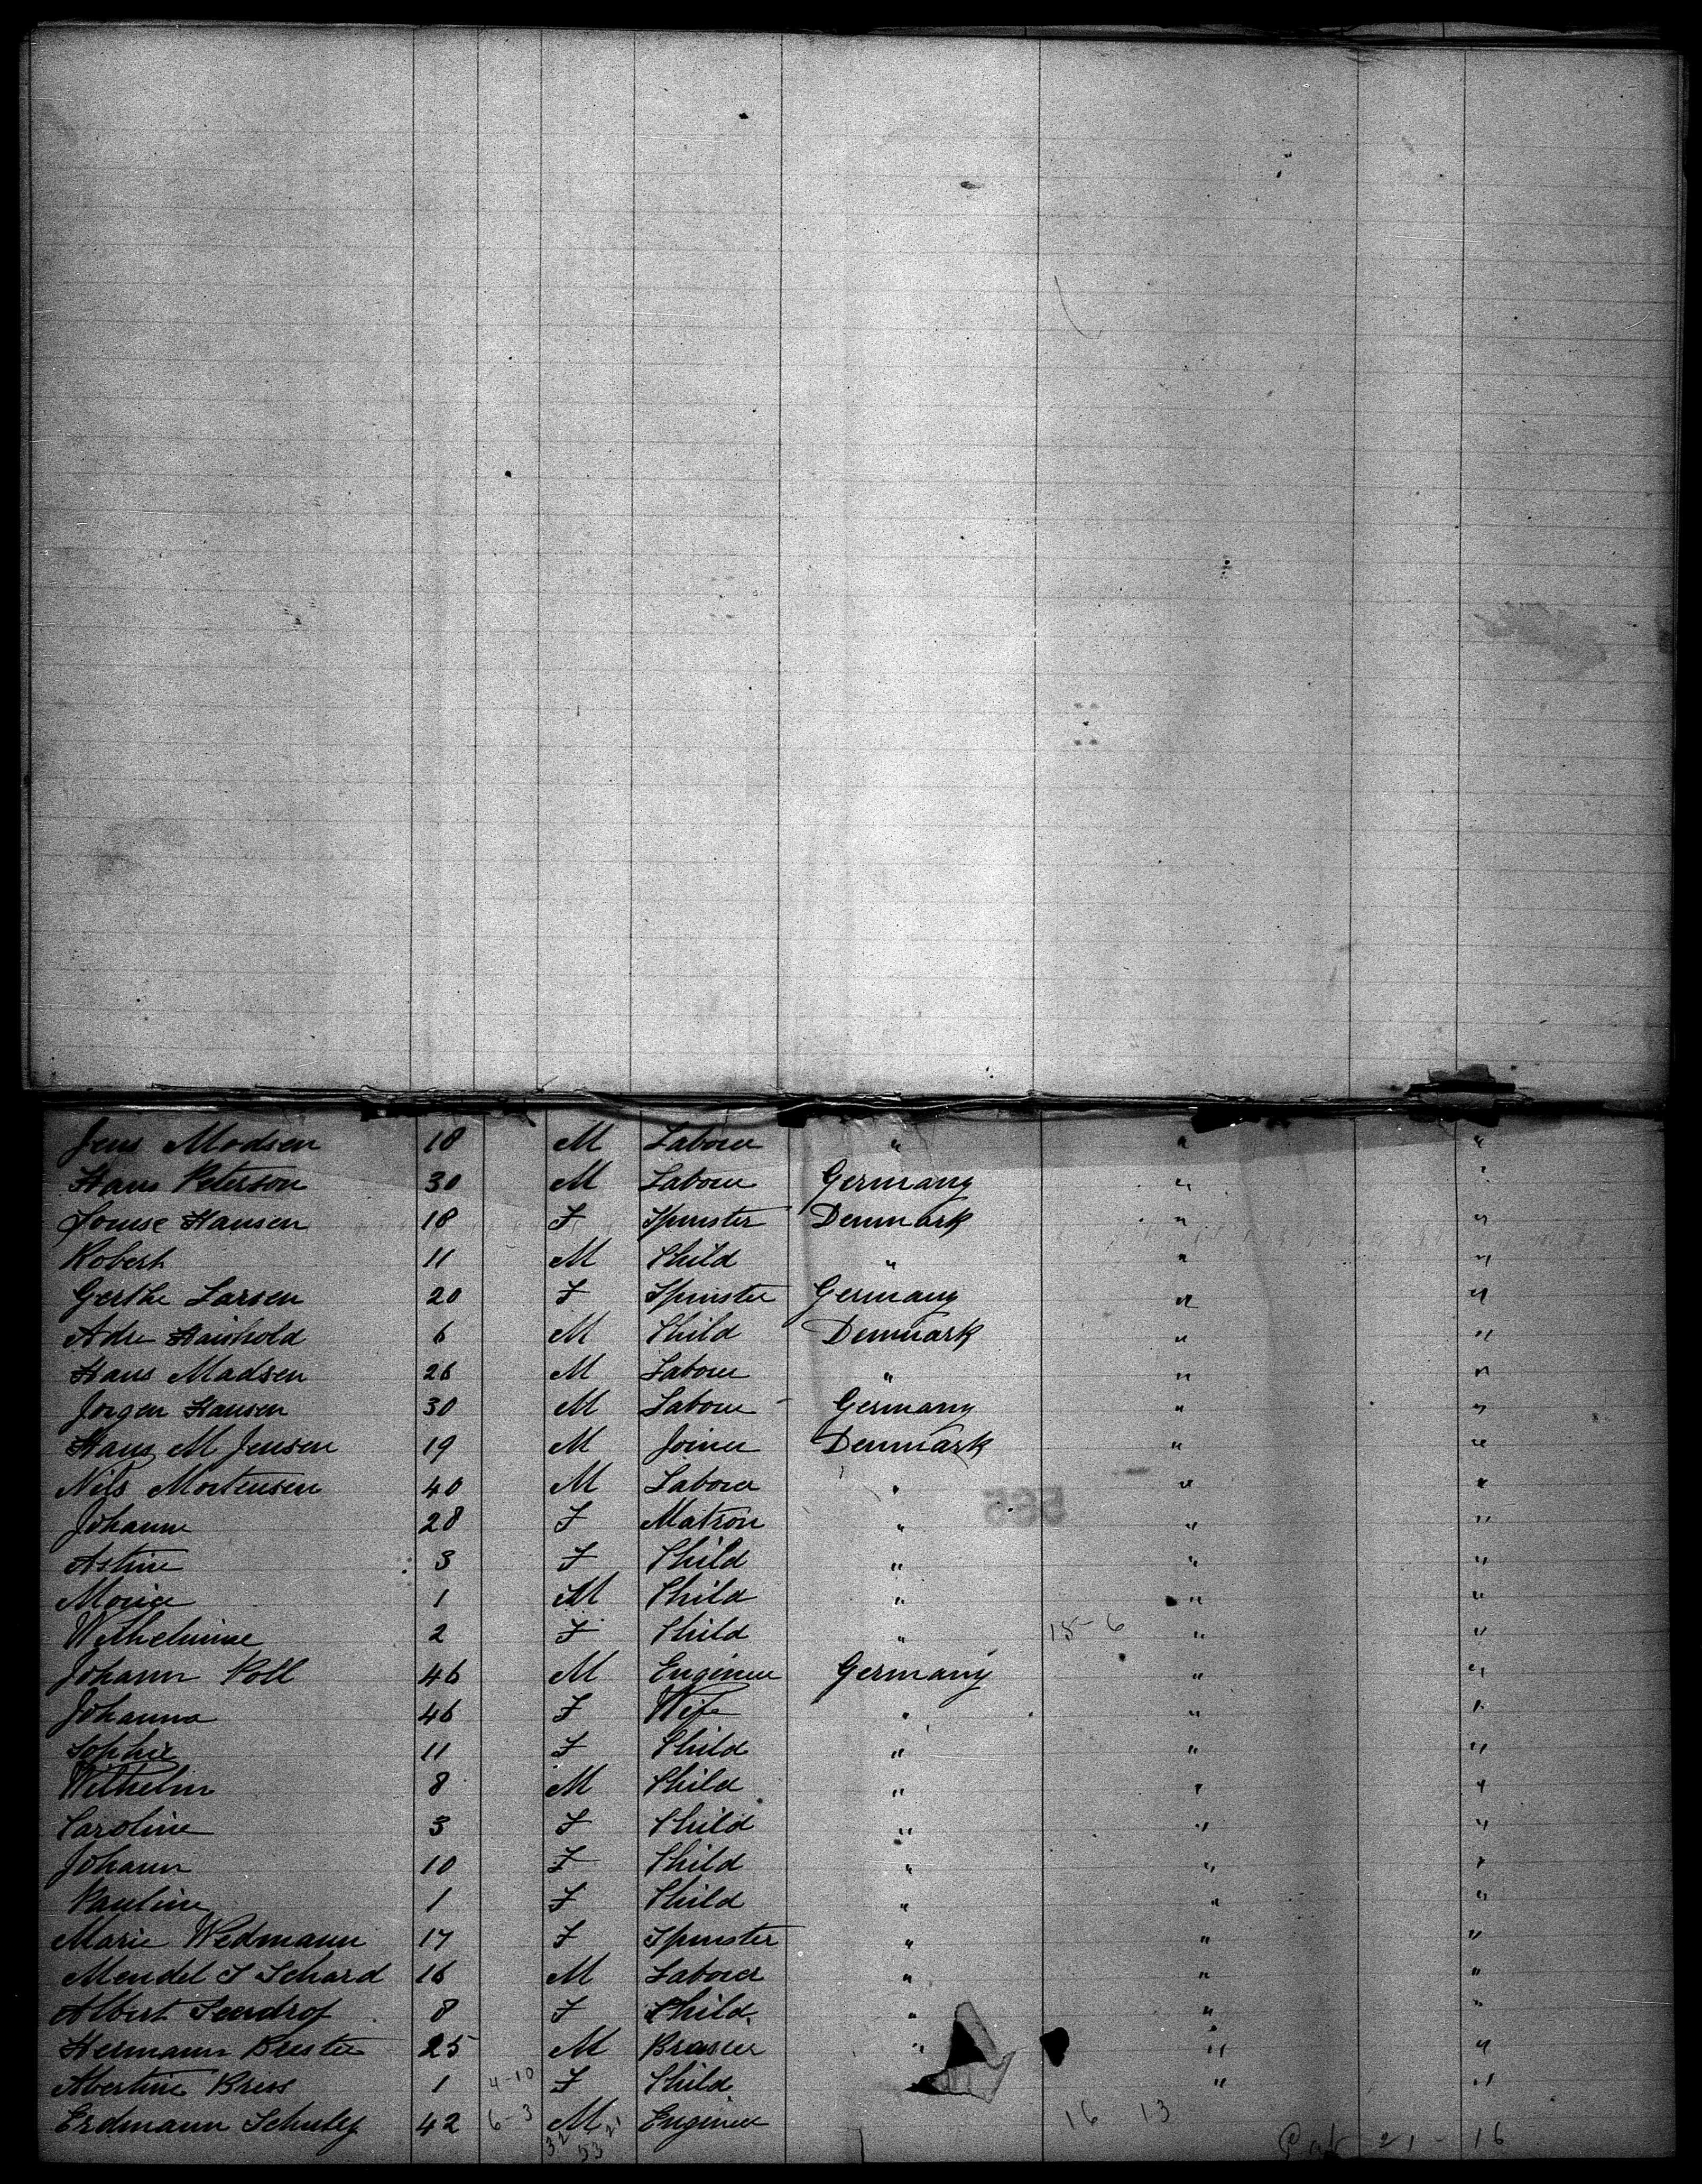 Jens Madsen 18 M Labourer " " "
Hans Peterson 30 M Labourer Germany " "
Louise Hansen 18 F Spinster Denmark " "
Robert 11 M Child " " "
Gerthe Larsen 20 F Spinster Germany " "
Adr Hainhold 6 M Child Denmark " "
Hans Madsen 26 M Labourer " " "
Jorgen Hansen 30 M Labourer Germany " "
Hans M Jensen 19 M Joiner Denmark " "
Nils Mortensen 40 M Labourer " " "
Johann 28 F Matron " " "
Astine 3 F Child " " "
1 M Child " " "
Wilhelmine 2 F Child " 15-6 " "
Johann Poll 46 M Engineer Germany " "
Johanna 46 F Wife " " "
Sophie 11 F Child " " "
Wilhelm 8 M Child " " "
Caroline 3 F Child " " "
Johann 10 F Child " " "
Pauline 1 F Child " " "
Marie Wedmann 17 F Spinster " " "
Mendel S Schard 16 M Labourer " " "
Albert 8 F Child " " "
Hermann 25 M " " "
Abertine Bress 1 4-10 F Child " "
Erdmann Schulz 42 6-3 M Engineer 16 13
32 53 21 21 - 16